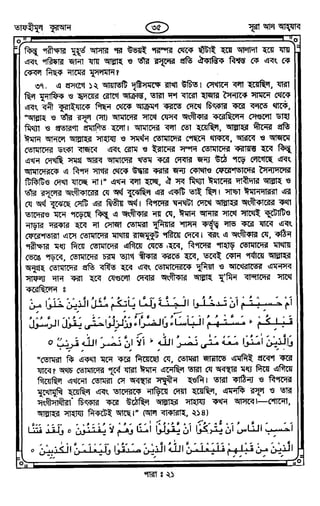 তাফহীমুল কুরআন
৩৫
সূরা আল আহযাব
কিন্তু পরীক্ষার মুহূর্ত আসার পর উভয়ই পরস্পর থেকে ছাঁটাই হয়ে আলাদা হয়ে যায়
এবং পরিষ্কার জানা যায় আল্লাহ ও তাঁর রসূলের প্রতি ঐকান্তিক বিশ্বস্ত কে এবং কে
কেবল নিছক নামের মুসলমান?
৩৭. এ প্রসংগে ১২ আয়াতটি দৃষ্টিসমক্ষে রাখা উচিত। সেখানে বলা হয়েছিল, যারা
ছিল মুনাফিক ও হৃদয়ের রোগে আক্রান্ত, তারা দশ বারো হাজার সৈন্যকে সামনে থেকে
এবং বনী কুরাইযাকে পিছন থেকে আক্রমণ করতে দেখে চিৎকার করে বলতে থাকে,
"আল্লাহ ও তাঁর রসূল (সা) আমাদের সাথে যেসব অংগীকার করেছিলেন সেগুলো ডাহা
মিথ্যা ও প্রতারণা প্রমাণিত হলো। আমাদের বলা তো হয়েছিল, আল্লাহর দীনের প্রতি
ঈমান আনলে আল্লাহর সাহায্য ও সমর্থন তোমাদের পেছনে থাকবে, আরবে ও আজমে
তোমাদের ডংকা বাজবে এবং রোম ও ইরানের সম্পদ তোমাদের করায়ত্ত হবে কিন্তু
এখন দেখছি সমগ্র আরব আমাদের খতম করে দেবার জন্য উঠে পড়ে লেগেছে এবং
আমাদেরকে এ বিপদ সাগর থেকে উদ্ধার করার জন্য কোথাও ফেরেশতাদের সৈন্যদলের
টিকিটিও দেখা যাচ্ছে না।" এখন বলা হচ্ছে, ঐ সব মিথ্যা ঈমানের দাবীদার আল্লাহ ও
তাঁর রসূলের অংগীকারের যে অর্থ বুঝেছিল এর একটি তাই ছিল। সাচ্চা ঈমানদাররা এর
যে অর্থ বুঝেছে সেটি এর দ্বিতীয় অর্থ। বিপদের ঘনঘটা দেখে আল্লাহর অংগীকারের কথা
তাদেরও মনে পড়েছে কিন্তু এ অংগীকার নয় যে, ঈমান আনার সাথে সাথেই কুটোটিও
নাড়ার দরকার হবে না সোজা তোমরা দুনিয়ার শাসন কর্তৃত্ব লাভ করে যাবে এবং
ফেরেশতারা এসে তোমাদের মাথায় রাজমুকুট পরিয়ে দেবে। বরং এ অংগীকার যে, কঠিন
পরীক্ষার মধ্য দিয়ে তোমাদের এগিয়ে যেতে হবে, বিপদের পাহাড় তোমাদের মাথায়
ভেঙে পড়বে, তোমাদের চরম ত্যাগ স্বীকার করতে হবে, তবেই কোন পর্যায়ে আল্লাহর
অনুগ্রহ তোমাদের প্রতি বর্ষিত হবে এবং তোমাদেরকে দুনিয়া ও আখেরাতের এমনসব
সাফল্য দান করা হবে যেগুলো দেবার অংগীকার আল্লাহ মু'মিন বান্দাদের সাথে
করেছিলেন ঃ
اَمْ حَسِبْتُمْ اَنْ تَدْخُلُوا الْجَنَّةَ وَلَمَّا يَاْتِكُمْ مَّثَلُ الَّذِيْنَ خَلَوْا مِنْ
قَبْلِكُمْ ۗ مَسَّتْهُمُ الْبَاْسَآءُ وَالضَّرَّآءُ وَزُلْزِلُوْا حَتّٰى يَقُوْلَ الرَّسُوْلُ
وَالَّذِيْنَ اٰمَنُوْا مَعَهٗ مَتٰى نَصْرُ اللّٰهِ ۗ اَلَا اِنَّ نَصْرَ اللّٰهِ قَرِيْبٌ ○
"তোমরা কি একথা মনে করে নিয়েছো যে, তোমরা জান্নাতে এমনিই প্রবেশ করে
যাবে? অথচ তোমাদের পূর্বে যারা ঈমান এনেছিল তারা যে অবস্থার মধ্য দিয়ে এগিয়ে
গিয়েছিল এখনো তোমরা সে অবস্থার সম্মুখীন হওনি। তারা কাঠিন্য ও বিপদের
মুখোমুখি হয়েছিল এবং তাদেরকে নাড়িয়ে দেয়া হয়েছিল, এমনকি রসূল ও তার
সংগীসাথীরা চিৎকার করে উঠেছিল আল্লাহর সাহায্য কখন আসবে।—শোনো,
আল্লাহর সাহায্য নিকটেই আছে।" (আল বাকারাহ, ২১৪)
اَحَسِبَ النَّاسُ اَنْ يُّتْرَكُوْا اَنْ يَّقُوْلُوْا اٰمَنَّا وَهُمْ لَا يُفْتَنُوْنَ ○ وَلَقَدْ فَتَنَّا
الَّذِيْنَ مِنْ قَبْلِهِمْ فَلَيَعْلَمَنَّ اللّٰهُ الَّذِيْنَ صَدَقُوْا وَلَيَعْلَمَنَّ الْكٰذِبِيْنَ ○
পারা ঃ ২১